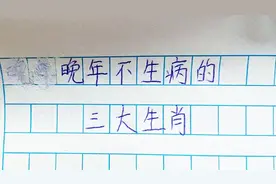 晚年不生病的
三大生肖